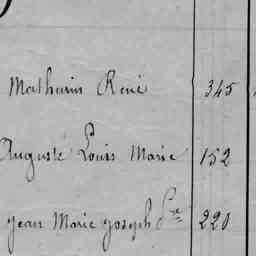 Mathurin René 345
Auguste Louis Marie 152
Jean Marie Joseph Pre 220